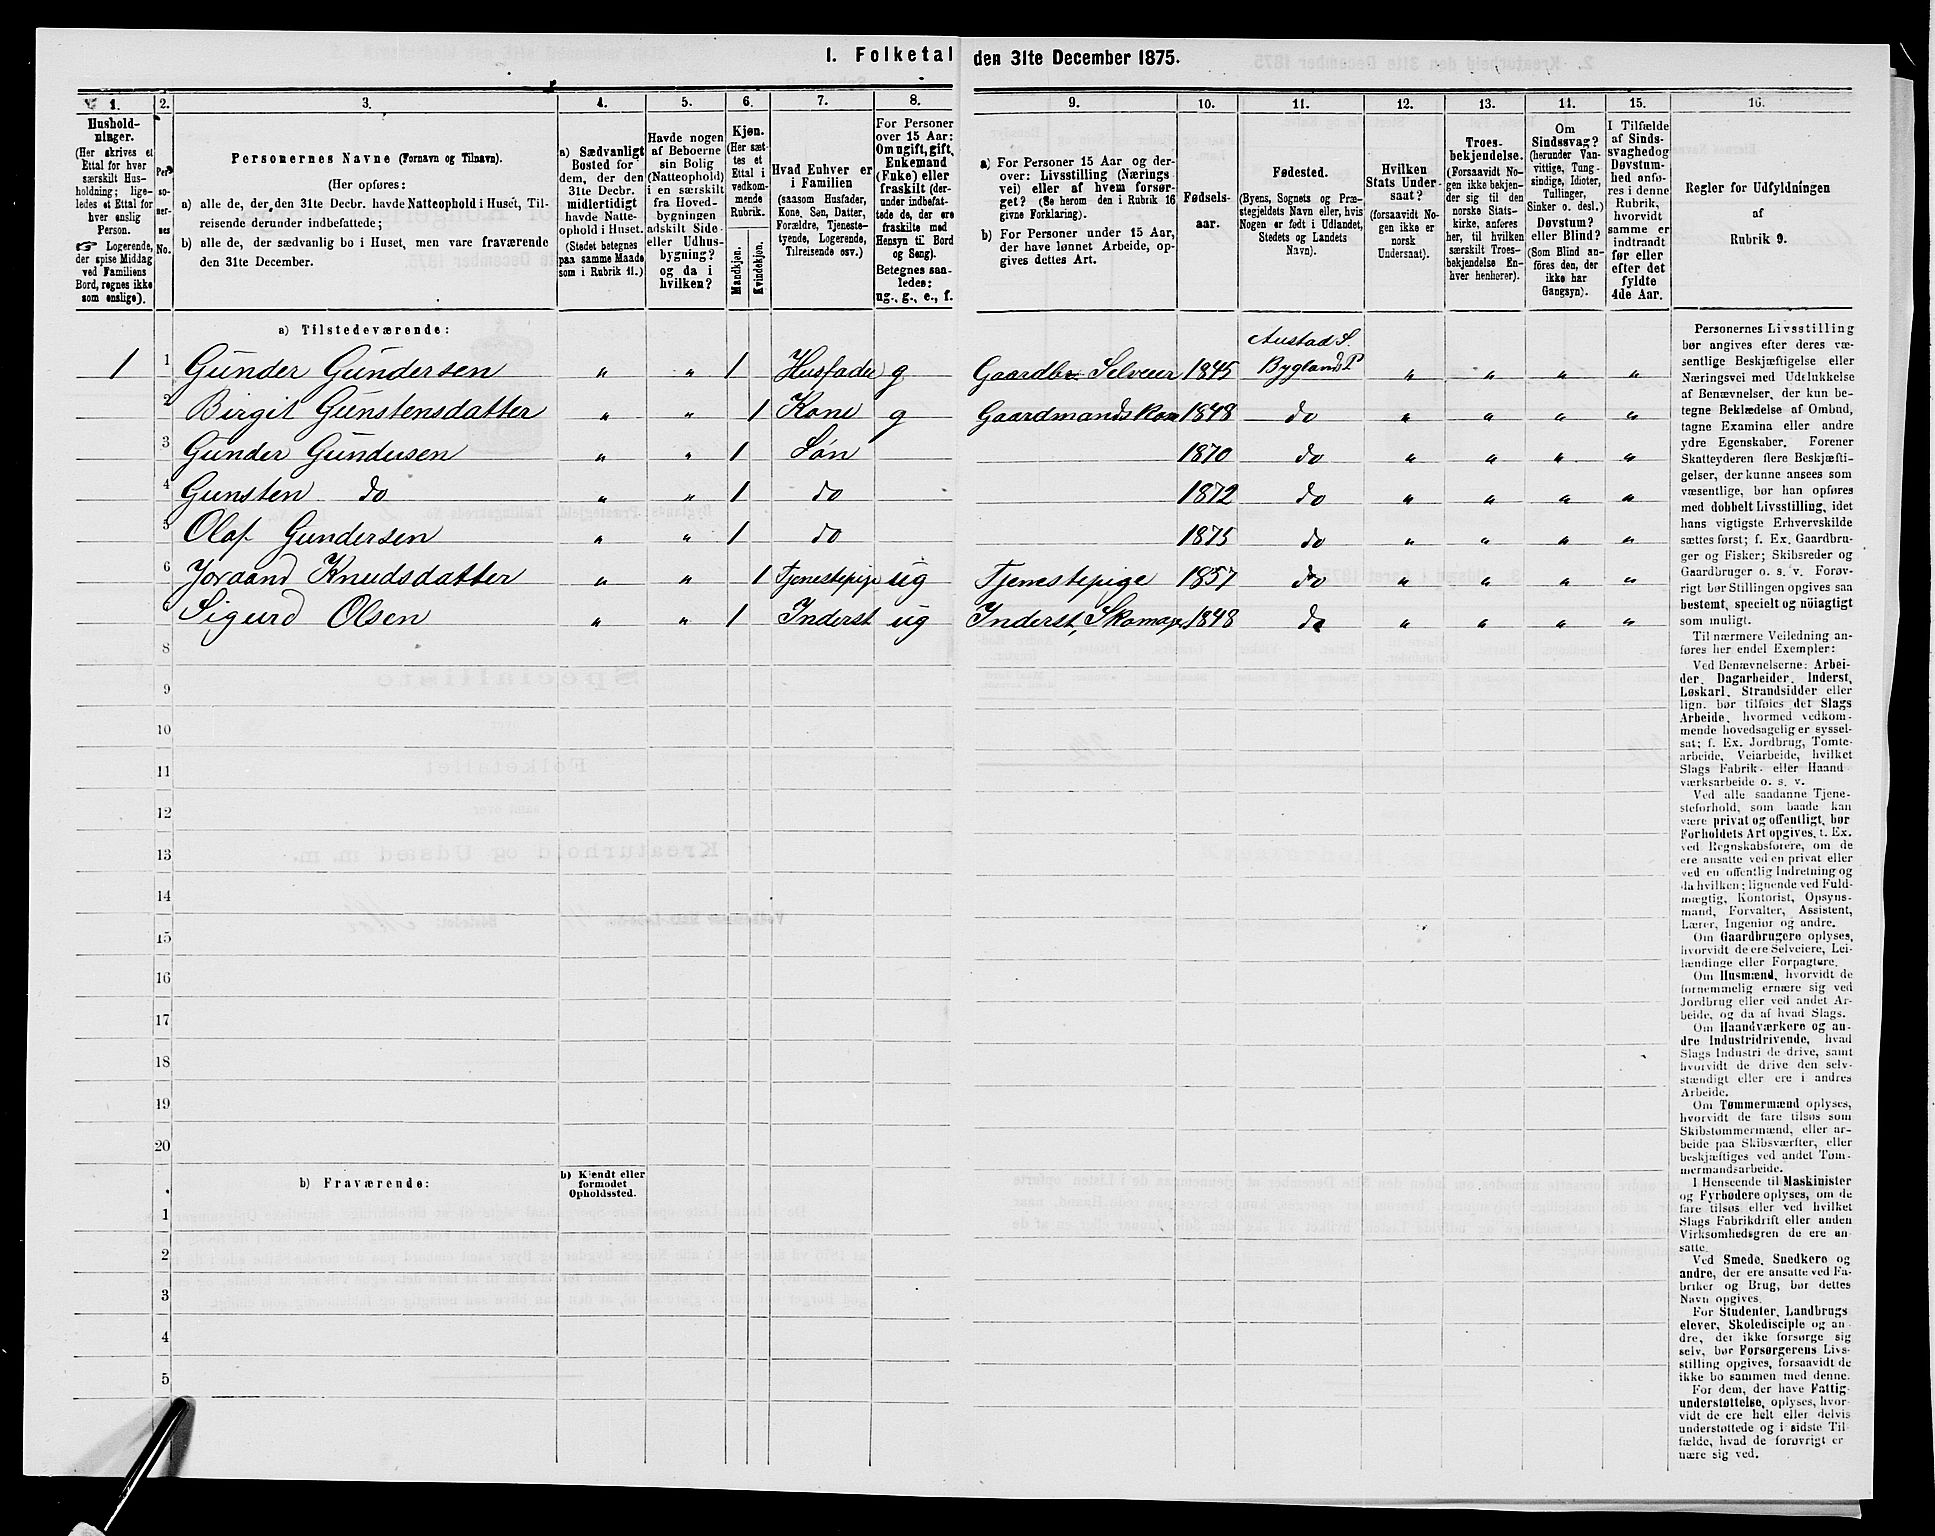 1. Folketal den 31te December 1875.
1. 2. 3. 4. 5. 6. 7. 8. 9. 10. 11. 12. 13. 14. 15. 16.
Hushold-
ninger.
(Her skrives et
Ettal for hver
særskilt Hus-
holdning; lige-
ledes et Ettal for
hver enslig
Person.
☞ Logerende,
der spise Middag
ved Familiens
Bord, regnes ikke
som enslige).
Per-
so-
ner-
nes
No.
Personernes Navne (Fornavn og Tilnavn).
(Her opføres:
a) alle de, der den 31te Decbr. havde Natteophold i Huset, Til-
reisende derunder indbefattede;
b) alle de, der sædvanlig bo i Huset, men vare fraværende
den 31te December.
a) Sædvanligt
Bosted for
dem, der den
31te Decbr.
midlertidigt
havde Natte-
ophold i Huset.
(Stedet betegnes
paa samme Maade
som i Rubrik 11.)
Havde nogen
af Beboerne
sin Bolig
(Natteophold)
i en særskilt
fra Hoved-
bygningen
adskilt Side-
eller Udhus-
bygning?
og da i
hvilken?
Kjøn.
(Her sæt-
tes et
Ettal i
vedkom-
mende
Rubrik.
Mandkjøn.
Kvindekjøn.
Hvad Enhver er
i Familien
(saasom Husfader,
Kone, Søn, Datter,
Forældre, Tjeneste-
tyende, Logerende,
Tilreisende osv.)
For Personer
over 15 Aar:
Om ugift, gift,
Enkemand
(Enke) eller
fraskilt (der-
under indbefat-
tede de, der ere
fraskilte med
Hensyn til Bord
og Seng).
Betegnes saa-
ledes:
ug., g., e., f.
a) For Personer 15 Aar og der-
over: Livsstilling (Nærings
vei) eller af hvem forsør-
get? (Se herom den i Rubrik 16
givne Forklaring).
b) For Personer under 15 Aar,
der have lønnet Arbeide, op-
gives dettes Art.
Fødsels-
aar.
Fødested.
(Byens, Sognets og Præ-
stegjeldets Navn eller, hvis
Nogen er født i Udlandet,
Stedets og Landets
Navn).
Hvilken
Stats Under-
saat?
(forsaavidt No-
gen ikke er
norsk
Undersaat).
Troes-
bekjendelse.
(Forsaavidt No-
gen ikke bekjen-
der sig til den
norske Stats-
kirke, anføres
her, til hvilken
særskilt Troes-
bekjendelse En-
hver henhører).
Om
Sindssvag?
(herunder Van-
vittige, Tung-
sindige, Idioter,
Tullinger,
Sinker o. desl.)
Døvstum?
eller Blind?
(Som Blind an-
føres den, der
ikke har
Gangsyn).
I Tilfælde
af Sinds-
svaghed og
Døvstum-
hed anfø-
res i denne
Rubrik,
hvorvidt
samme er
indtraadt
før eller
efter det
fyldte
4de Aar.
Regler for Udfyldningen
af
Rubrik 9.
a) Tilstedeværende:
Austad S.
1 1 Gunder Gundersen " " 1 Husfader g Gaardbr. Selveier 1845 Bygland P " " " "
2 Birgit Gunstensdatter " " 1 Kone g Gaardmandskone 1848 do " " " "
3 Gunder Gundersen " " 1 Søn 1870 do " " " "
4 Gunsten do " " 1 do 1872 do " " " "
5 Olaf Gundersen " " 1 do 1875 do " " " "
6 Joraand Knudsdatter " " 1 Tjenestepige ug Tjenestepige 1857 do " " " "
Sigurd Olsen " " 1 Inderst ug Inderst, Skomager 1848 do " " " "
8
9
10
11
12
13
14
15
16
17
18
19
20
b) Fraværende:
b) Kjendt eller
formodet
Opholdssted.
1
2
3
4
5
Personernes Livsstilling
bør angives efter deres væ-
sentlige Beskjæftigelse eller
Næringsvei med Udelukkelse
af Benævnelser, der kun be-
tegne Beklædelse af Ombud,
tagne Examina eller andre
ydre Egenskaber. Forener
Skatteyderen flere Beskjæfti-
gelser, der kunne ansees som
væsentlige, bør han opføres
med dobbelt Livsstilling, idet
hans vigtigste Erhvervskilde
sættes først; f. Ex. Gaardbru-
ger og Fisker; Skibsreder og
Gaardbruger o. s. v. Forøv-
rigt bør Stillingen opgives saa
bestemt, specielt og nöiagtigt
som muligt.
Til nærmere Veiledning an-
føres her endel Exempler:
Ved Benævnelserne: Arbei-
der, Dagarbeider, Inderst,
Løskarl, Strandsidder eller
lign. bør tilføies det Slags
Arbeide, hvormed vedkom-
mende hovedsagelig er syssel-
sat; f. Ex. Jordbrug, Tomte-
arbeide, Veiarbeide, hvilket
Slags Fabrik- eller Haand-
værksarbeide o. s. v.
Ved alle saadanne Tjene-
steforhold, som baade kan
være privat og offentligt, bør
Forholdets Art opgives, t. Ex.
ved Regnskabsførere, om de
ere ansatte ved en privat eller
ved en offentlig Indretning og
da hvilken; lignende ved Fuld-
mægtig, Kontorist, Opsyns-
mand, Forvalter, Assistent,
Lærer, Ingeniør og andre.
Om Gaardbrugere oplyses,
hvorvidt de ere Selveiere, Lei-
lændinge eller Forpagtere.
Om Husmænd, hvorvidt de
fornemmelig ernære sig ved
Jordbrug eller ved andet Ar-
beide, og da af hvad Slags.
Om Haandværkere og an-
dre Industridrivende, hvad
Slags Industri de drive, samt
hvorvidt de drive den selv-
stændigt eller ere i andres
Arbeide.
Om Tømmermænd oplyses,
hvorvidt de fare tilsøs som
Skibstømmermænd, eller ar-
beide paa Skibsværfter, eller
beskjæftiges ved andet Tøm-
mermandsarbeide.
I Henseende til Maskinister
og Fyrbødere oplyses, om de
fare tilsøs eller ved hvilket
Slags Fabrikdrift eller anden
Virksomhedsgren de ere an-
satte.
Ved Smede, Snedkere og
andre, der ere ansatte ved Fa-
briker og Brug, bør dettes
Navn opgives.
For Studenter, Landbrugs
elever, Skoledisciple og an-
dre, der ikke forsørge sig
selv, bør Forsørgerens Livs-
stilling opgives, forsaavidt de
ikke bo sammen med denne.
For dem, der have Fattig-
understøttelse, oplyses, hvor-
vidt de ere helt eller delvis
understøttede og i sidste Til-
fælde, hvad de forøvrigt er
nære sig ved.